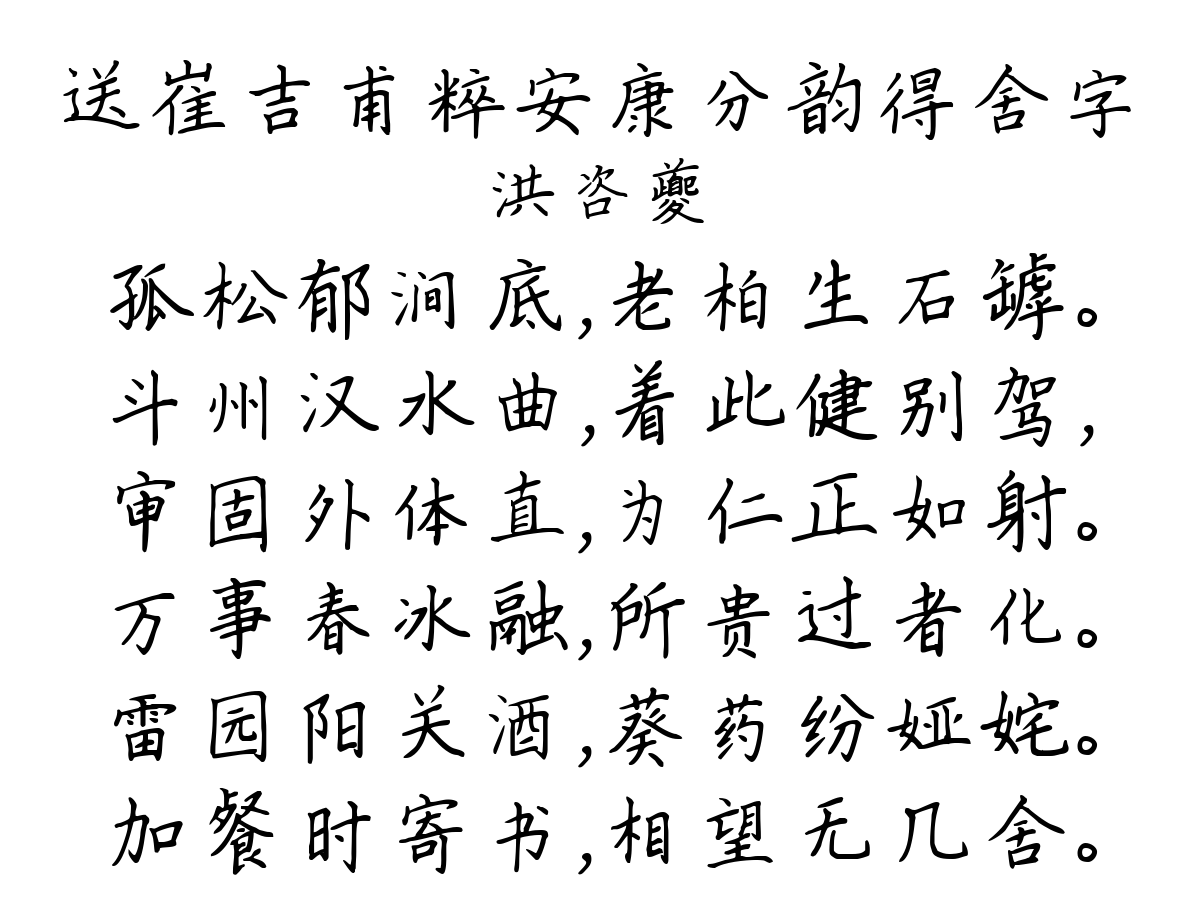 送崔吉甫粹安康分韵得舍字
洪咨夔
孤松郁涧底,老柏生石罅。
斗州汉水曲,着此健别驾,
审固外体直,为仁正如射。
万事春冰融,所贵过者化。
雷园阳关酒,葵药纷娅姹。
加餐时寄书,相望无几舍。